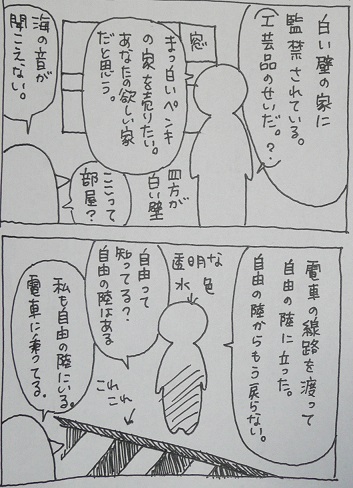 白い壁の家に
監禁されている。
工芸品のせいだ。?
窓
まっ白いペンキ
の家を売りたい。
あなたの欲しい家
だと思う。
四方が
白い壁
ここって
部屋?
海の音が
聞こえない。
電車の線路を渡って
自由の陸に立った。
自由の陸からもう戻らない。
透明な
水色
自由って
知ってる?
自由の陸はある
これ
これ
私も自由の陸にいる。
電車に乗ってる。